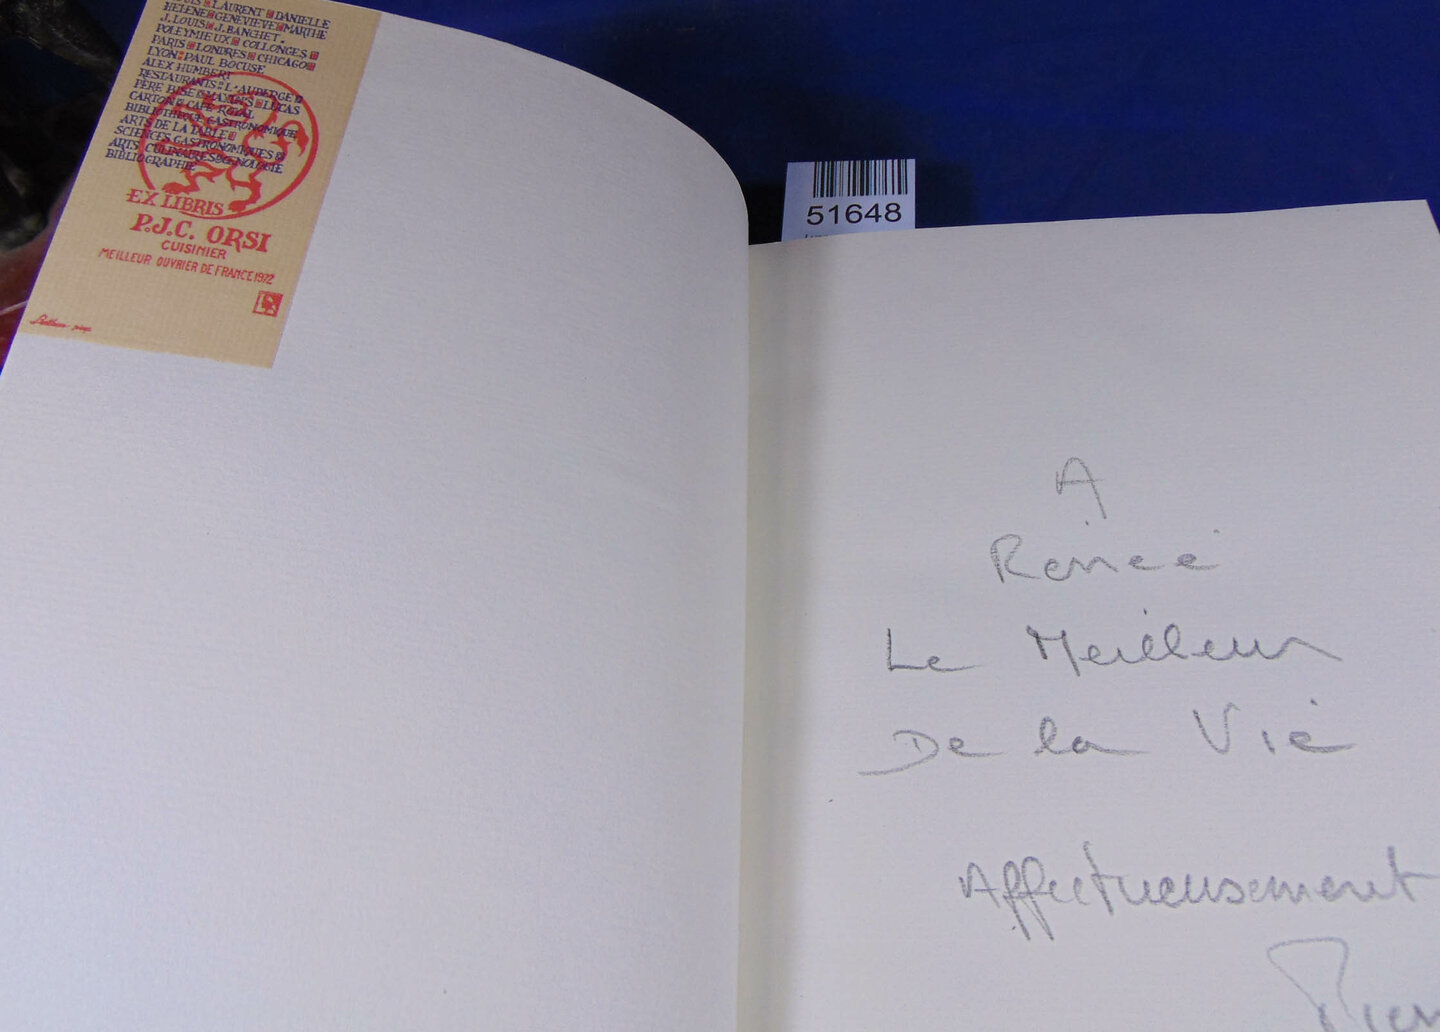 LAURENT DANIELLE
HELENE GENEVIEVE MARTHE
J. LOUIS J. BANCHET.
POLEYMIEUX COLLONGES
PARIS LONDRES CHICAGO
LYON PAUL BOCUSE
ALEX HUMBERT
RESTAURANTS L'AUBERGE
PÈRE BISE MAXIM'S LUCAS
CARTON CAFE ROYAL
BIBLIOTHEQUE GASTRONOMIQUE
ARTS DE LA TABLE
SCIENCES GASTRONOMIQUES
ARTS CULINAIRES OENOLOGIE
BIBLIOGRAPHIE
EX LIBRIS
P.J.C. ORSI
CUISINIER
MEILLEUR OUVRIER DE FRANCE 1972
51648
A
Renée
Le Meilleur
De la Vie
Affectueusement